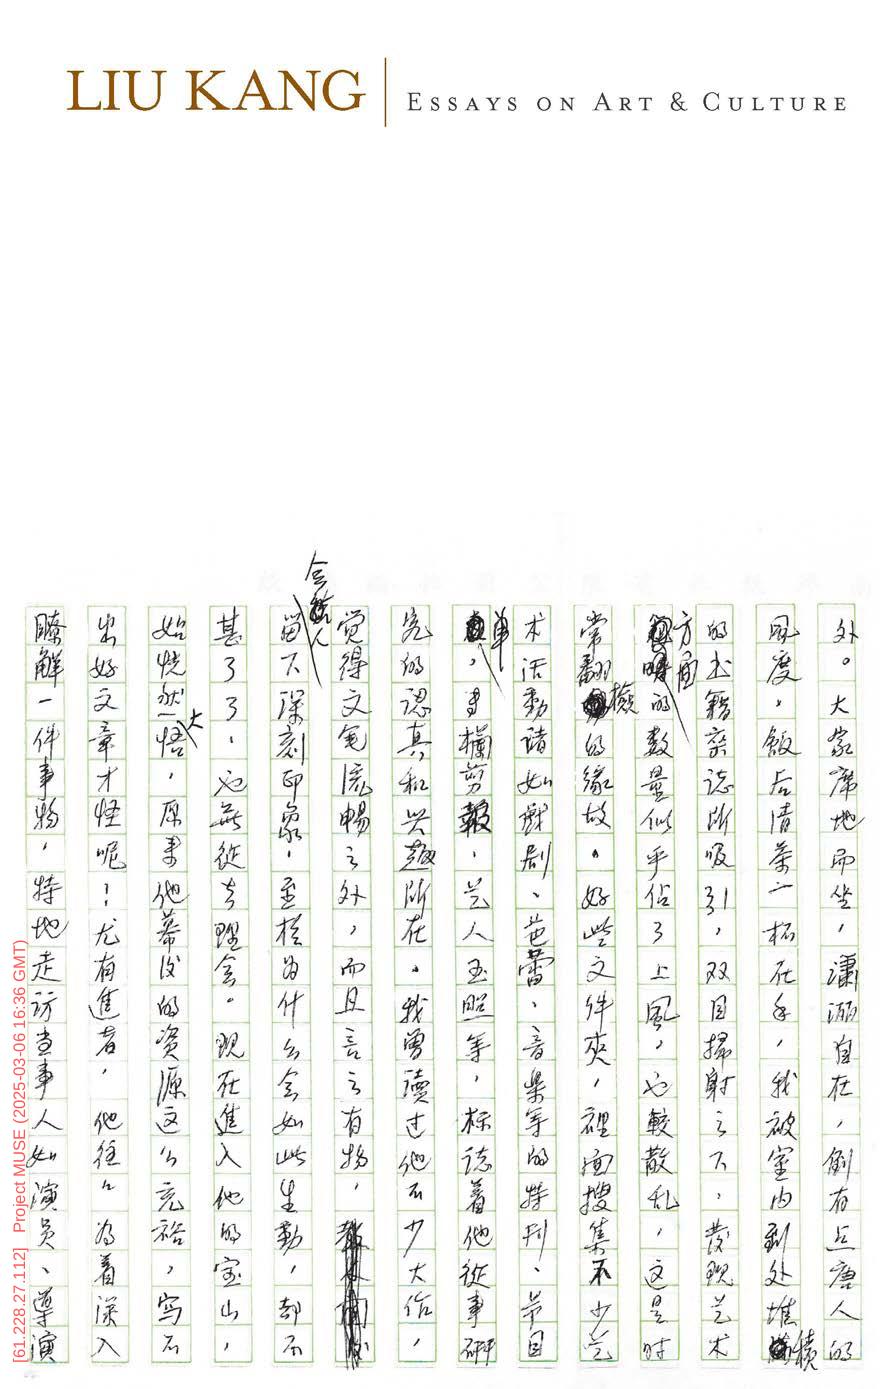 LIU KANG
ESSAYS ON ART & CULTURE
外。大家席地而坐，潇洒自在，倒有点唐人的
风度，飯后清茶一杯在手，我被室内到处堆積
的书籍杂誌所吸引，双目掃射之下，发现艺术
方面的数量似乎佔了上風，也較散乱，这是时
常翻檢的緣故。好些文件夾，裡面搜集不少艺
术活動諸如戲剧、芭蕾、音楽等的特刊、节目
单，專欄剪報，艺人玉照等，标誌着他從事研
究的認真和兴趣所在。我曾讀过他不少大作，
觉得文笔流暢之外，而且言之有物，
会給人
留下深刻印象，至於为什么会如此生動，却不
甚了了，也無從去理会。現在進入他的宝山，
始恍然大悟，原来他幕后的资源这么充裕，写不
出好文章才怪呢！尤有進者，他往々為着深入
瞭解一件事物，特地走訪当事人如演员、導演
[61.228.27.112] Project MUSE (2025-03-06 16:36 GMT)